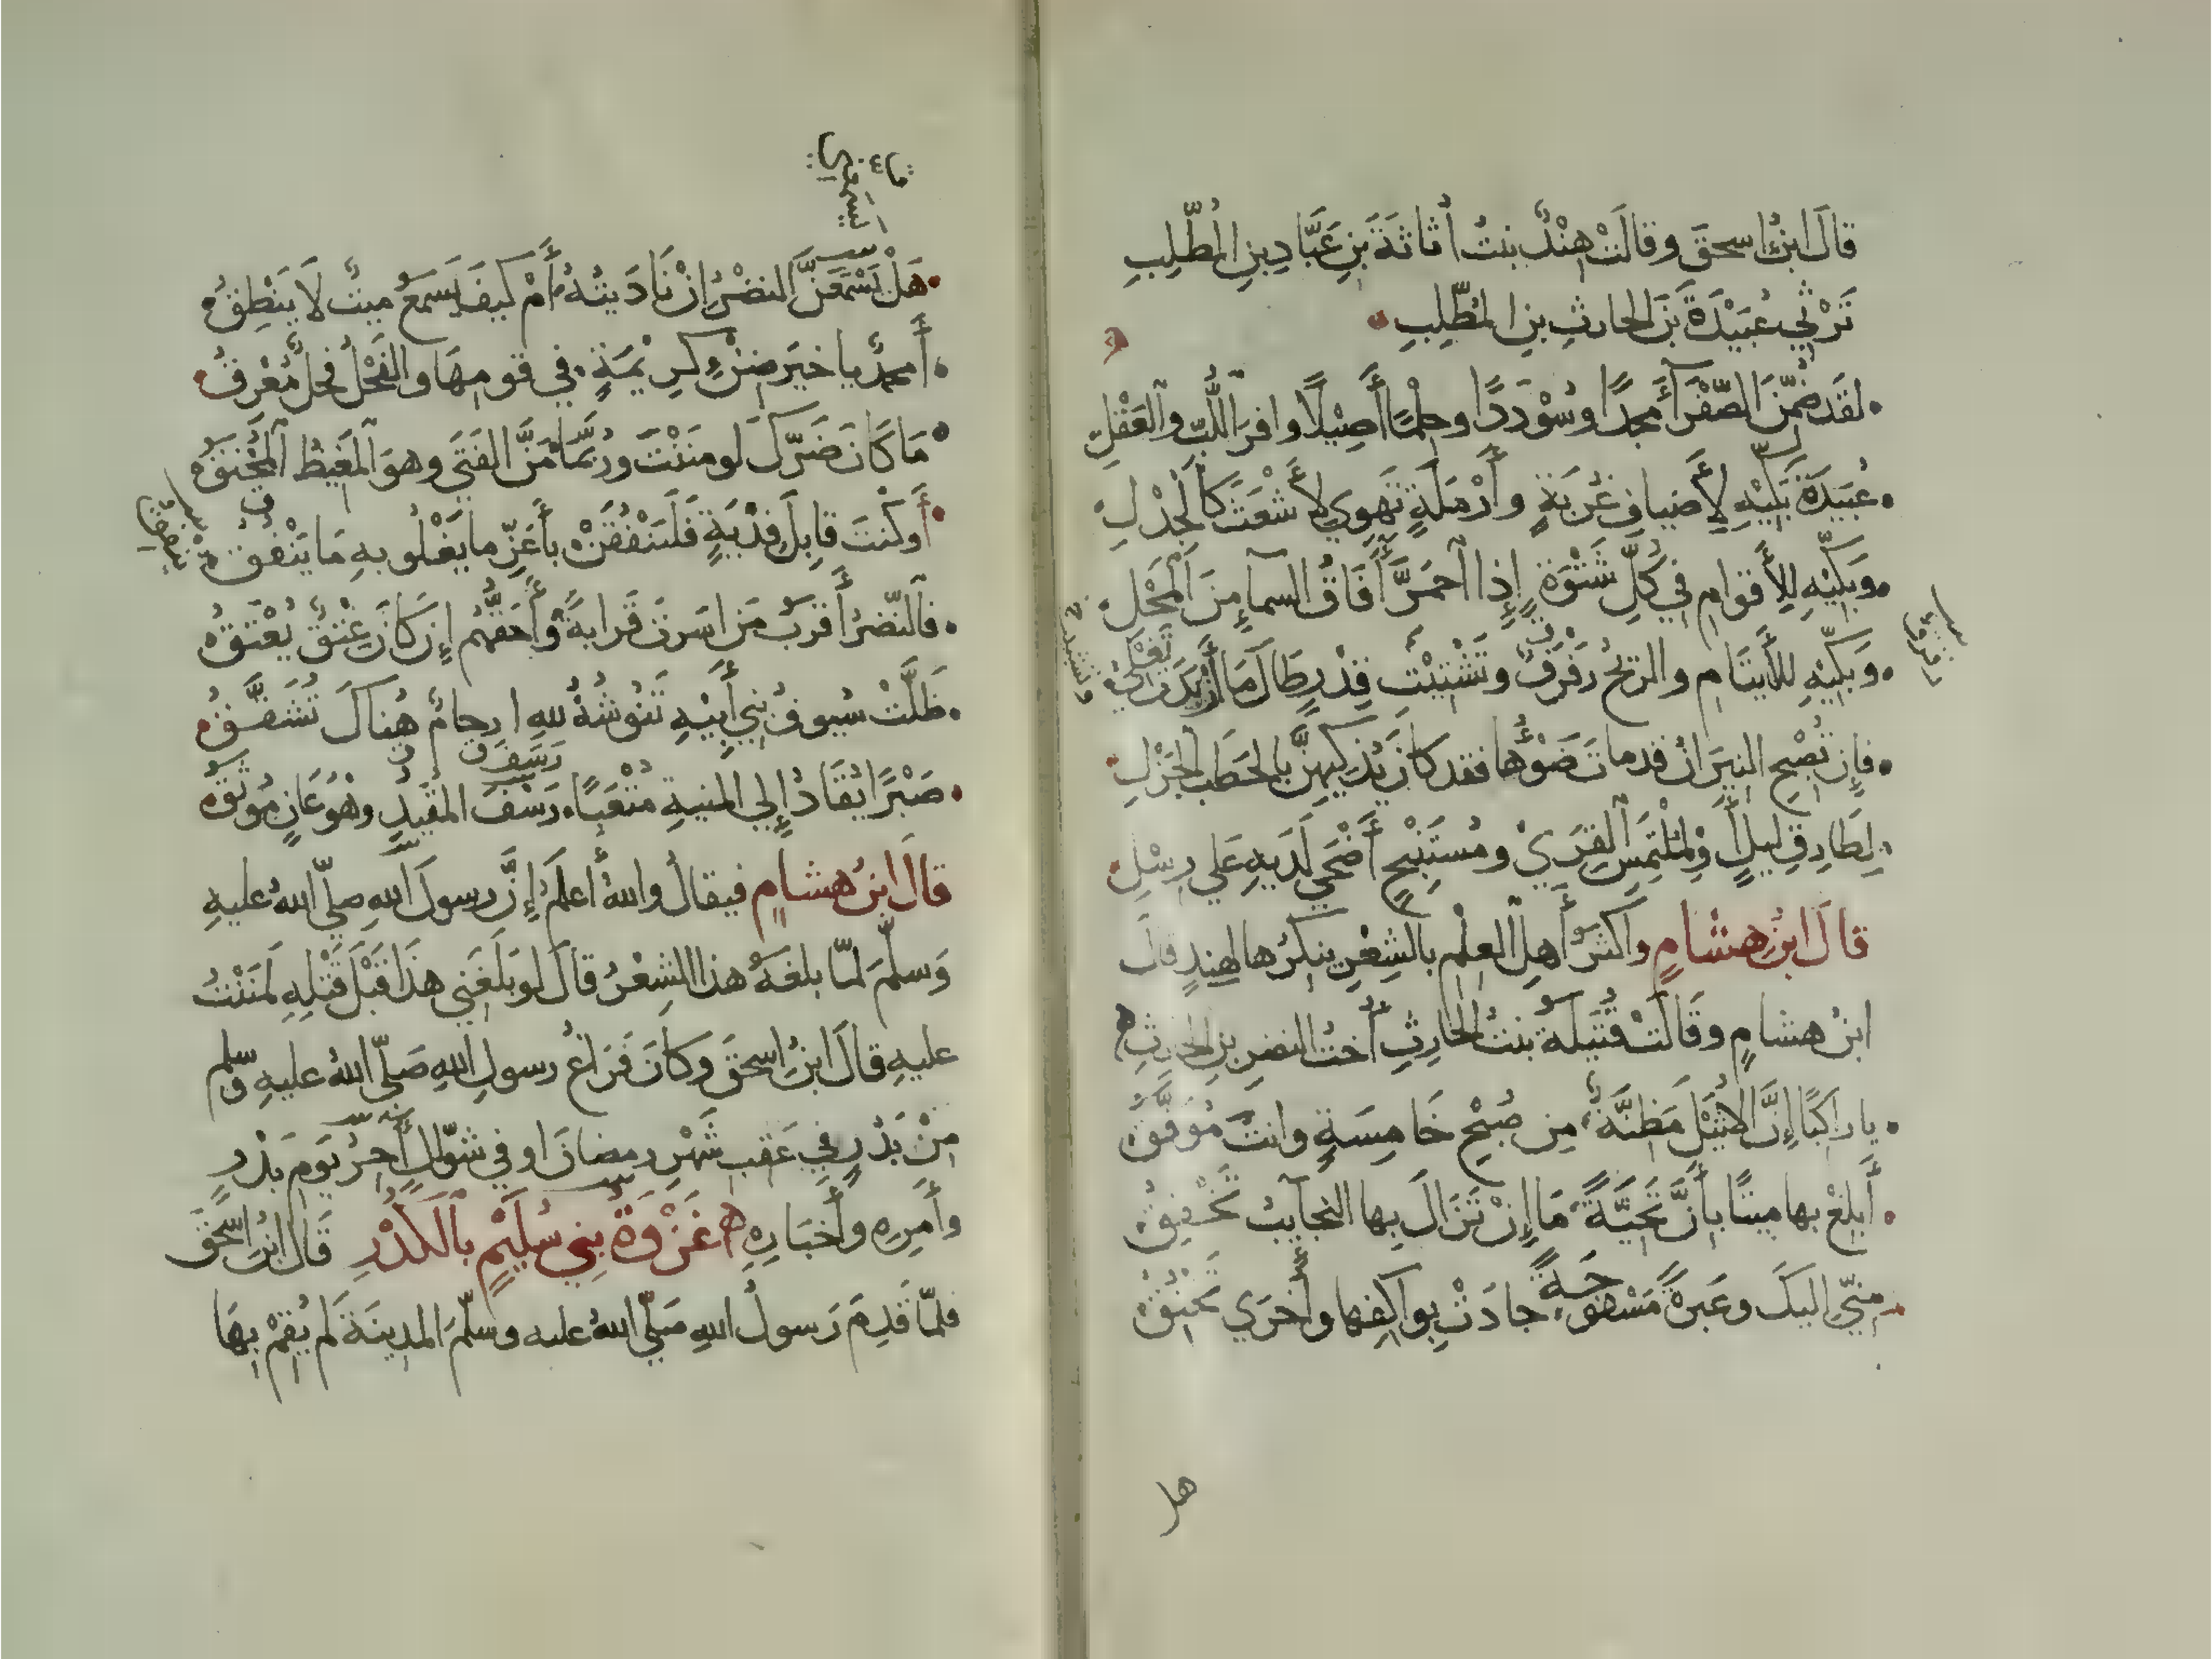 قالَ ابنُ اسحقَ وقالَتْ هِنْدُ بنتُ أُثاثَةَ بنِ عَبَّادِ بنِ المُطَّلِبِ
تَرْثِي عُبَيْدَةَ بَنَ الحارثِ بنِ المُطَّلِبِ
لقَد ضُمِّنَ الصَّفْرَآءُ مجدًا وسُوْدَدًا وحِلْمًا أَصِيْلًا وافرَ اللُّبِّ والعَقْلِ
عُبَيدَةَ بَكِّيْهِ لِأَضيافِ غُرْبَةٍ وأَرْمَلَةٍ تَهوِي لأَشْعَثَ كَالْجِذْلِ
وبَكِّيْهِ لِلأَقوامِ في كُلِّ شَتْوَةٍ إِذا احمَرَّ آفَاقُ السمآءِ مِنَ الْمَحْلِ
وَبَكِّيْهِ للأَيتَامِ والريحُ زَفزَفٌ وتَشْتِيْتِ قِدْرٍ طَالَ مَا أَزْبَدَت تَغْلِي
فإِن تُصْبِحِ النيرَانُ قد ماتَ ضَوْؤُها فقد كانَ يُذكِيهِنَّ بالحَطَبِ الجَزْلِ
لِطَارِقِ لَيلٍ أَوْ لِمُلْتَمِسِ القِرَيْ ومُسْتَنْبِحٍ أَضْحَي لَدَيهِ عَلي رِسْلِ
قالَ ابنُ هِشامٍ وأكثرُ أَهلِ العلْمِ بالشِعْرِ ينكرُها لهِندٍ قالَ
ابنُ هشامٍ وقَالَتْ قُتَيلَةُ بنتُ الحارِثِ أُختُ النضرِ بنِ الحارثِ
يا رَاكبًا إِنَّ الاُثَيْلَ مَظِنَّةٌ مِن صُبْحِ خَامِسَةٍ وانتَ مُوَفَّقُ
أَبلِغْ بها ميتًا بأَنَّ تَحِيَّةً مَا إِنْ تَزَالُ بِها النجآيبُ تَخْفِقُ
مِنِّي اليكَ وعَبرةً مَسْفُوحَةً جادَتْ بِواكفِها وأُخرَي تَخنُقُ
هل
هَلْ يَسْمَعَنَّ النضْرُ إِنْ نَادَيتُهُ أَمْ كيفَ يَسمعُ ميتٌ لَا يَنْطِقُ
أَمحمدٌ يا خيرَ ضِنْءِ كرِيْمَةٍ في قومِهَا والفَحْلُ فحلٌ مُعْرِقُ
مَا كَانَ ضَرَّكَ لو مَنَنْتَ ورُبَّمَا مَنَّ الفَتَي وهوَ الْمَغيظُ المُحْنَقُ
أَو كُنْتَ قابِلَ فِدْيَةٍ فَلَيُنْفَقَنْ بأَعَزِّ ما يَغْلُو بهِ مَا يُنْفَقُ
فالنَّضرُ أَقرَبُ مَن اسَرتَ قَرابةً وأَحَقُّهم إِن كَانَ عِتْقٌ يُعْتَقُ
ظَلَّتْ سُيوفُ بَنِي أَبِيْهِ تَنُوشُهُ للهِ ارحامٌ هُنَاكَ تُشَقَّقُ
صَبْرًا يُقَادُ إِلي المنيةِ مُتْعَبًا رَسْفَ المقيدِ وهْوَ عَانٍ مُوثَقُ
قالَ ابنُ هشامٍ فيقالُ واللهُ أَعلَمُ إِنَّ رسولَ اللهِ صلّي اللهُ عليهِ
وَسلَّمَ لمّا بلغَهُ هذا الشِعْرُ قالَ لو بَلَغَنِي هذَا قَبْلَ قَتْلِهِ لَمَنَنْتُ
عليهِ قالَ ابنُ اسحقَ وكانَ فَرَاغُ رسولِ اللهِ صَلّي اللهُ عليهِ وسلم
مِنْ بَدْرٍ في عَقبِ شَهْرِ رمضانَ او في شوّالٍ أَخِرُ يَومِ بَدْرٍ
وأَمرِهِ وأَخبَارِهِ غَزْوَةُ بَنِي سُلَيْمٍ بالْكُدْرِ قَالَ ابنُ اسحقَ
فلمّا قَدِمَ رَسولُ اللهِ صَلّي اللهُ عليه وسلّمَ المدِينَةَ لَم يُقِمْ بِهَا